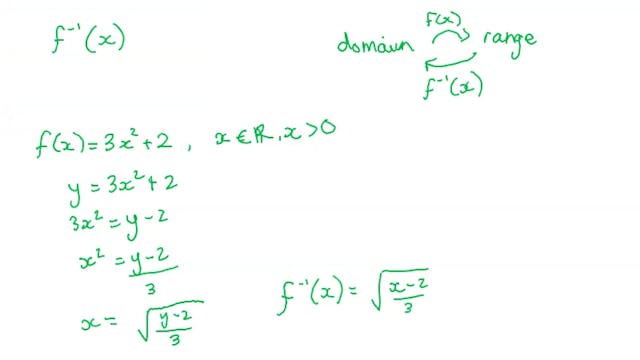 f⁻¹(x)
f(x)
domain range
f⁻¹(x)
f(x) = 3x² + 2 , x ∈ ℝ, x > 0
y = 3x² + 2
3x² = y - 2
x² = (y - 2)/3
x = √((y - 2)/3)
f⁻¹(x) = √((x - 2)/3)